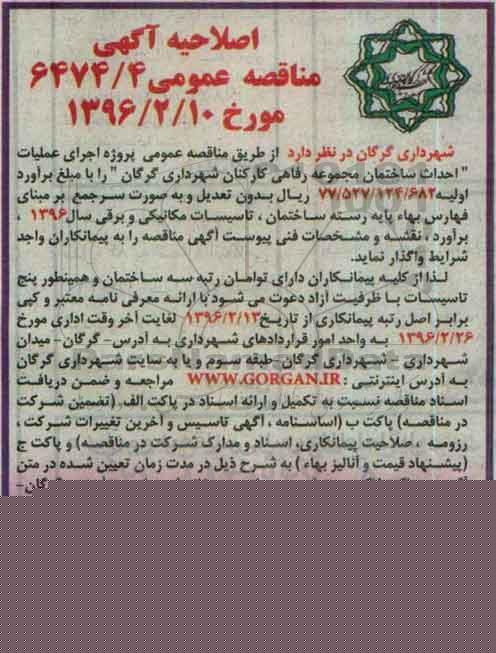 اصلاحیه آگهی
مناقصه عمومی ۶۴۷۴/۴
مورخ ۱۳۹۶/۲/۱۰
شهرداری گرگان در نظر دارد از طریق مناقصه عمومی پروژه اجرای عملیات
" احداث ساختمان مجموعه رفاهی کارکنان شهرداری گرگان " را با مبلغ برآورد
اولیه ۷۷/۵۲۷/۱۲۴/۶۸۲ ریال بدون تعدیل و به صورت سرجمع بر مبنای
فهارس بهاء پایه رسته ساختمان ، تاسیسات مکانیکی و برقی سال ۱۳۹۶ ،
برآورد ، نقشه و مشخصات فنی پیوست آگهی مناقصه را به پیمانکاران واجد
شرایط واگذار نماید.
لذا از کلیه پیمانکاران دارای توامان رتبه سه ساختمان و همینطور پنج
تاسیسات با ظرفیت آزاد دعوت می شود با ارائه معرفی نامه معتبر و کپی
برابر اصل رتبه پیمانکاری از تاریخ ۱۳۹۶/۲/۱۳ لغایت آخر وقت اداری مورخ
۱۳۹۶/۲/۲۶ به واحد امور قراردادهای شهرداری به آدرس- گرگان- میدان
شهرداری - شهرداری گرگان-طبقه سوم و یا به سایت شهرداری گرگان
به آدرس اینترنتی : WWW.GORGAN.IR مراجعه و ضمن دریافت
اسناد مناقصه نسبت به تکمیل و ارائه اسناد در پاکت الف (تضمین شرکت
در مناقصه) پاکت ب (اساسنامه ، آگهی تاسیس و آخرین تغییرات شرکت ،
رزومه ، صلاحیت پیمانکاری، اسناد و مدارک شرکت در مناقصه) و پاکت ج
(پیشنهاد قیمت و آنالیز بهاء ) به شرح ذیل در مدت زمان تعیین شده در متن
گرگان-